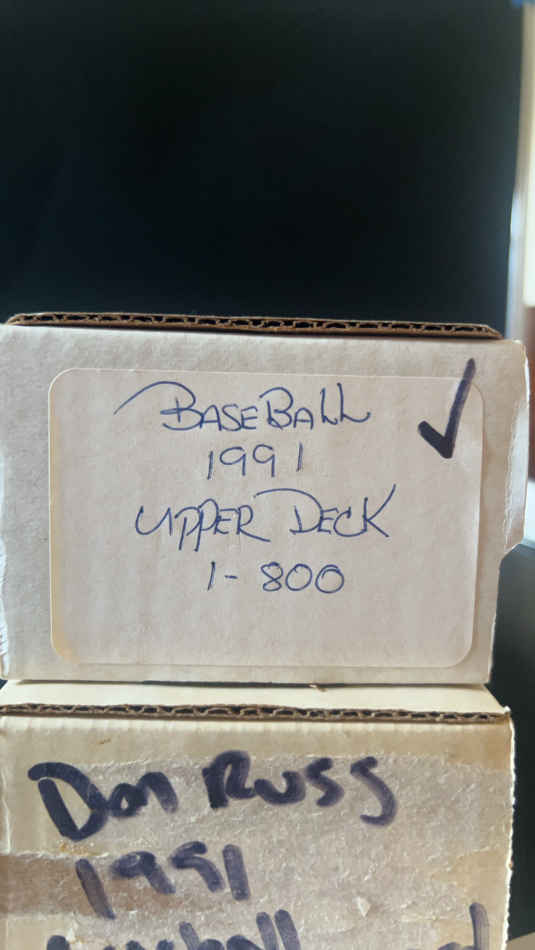 BASEBALL
1991
UPPER DECK
1-800
Don RUSS
1991